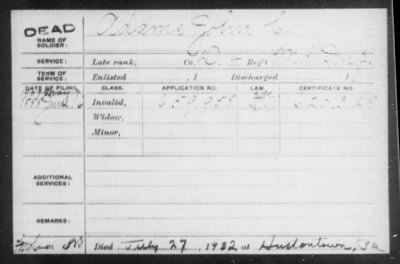 DEAD
NAME OF SOLDIER: Adams John C.
SERVICE: Late rank, Co. D. Reg't Md. Inf.
TERM OF SERVICE: Enlisted , 1 Discharged , 1
DATE OF FILING. CLASS. APPLICATION NO. LAW. CERTIFICATE NO.
Invalid, 659,955
Widow,
Minor,
ADDITIONAL SERVICES:
REMARKS:
Died July 27, 1922 at Hustontown, Pa